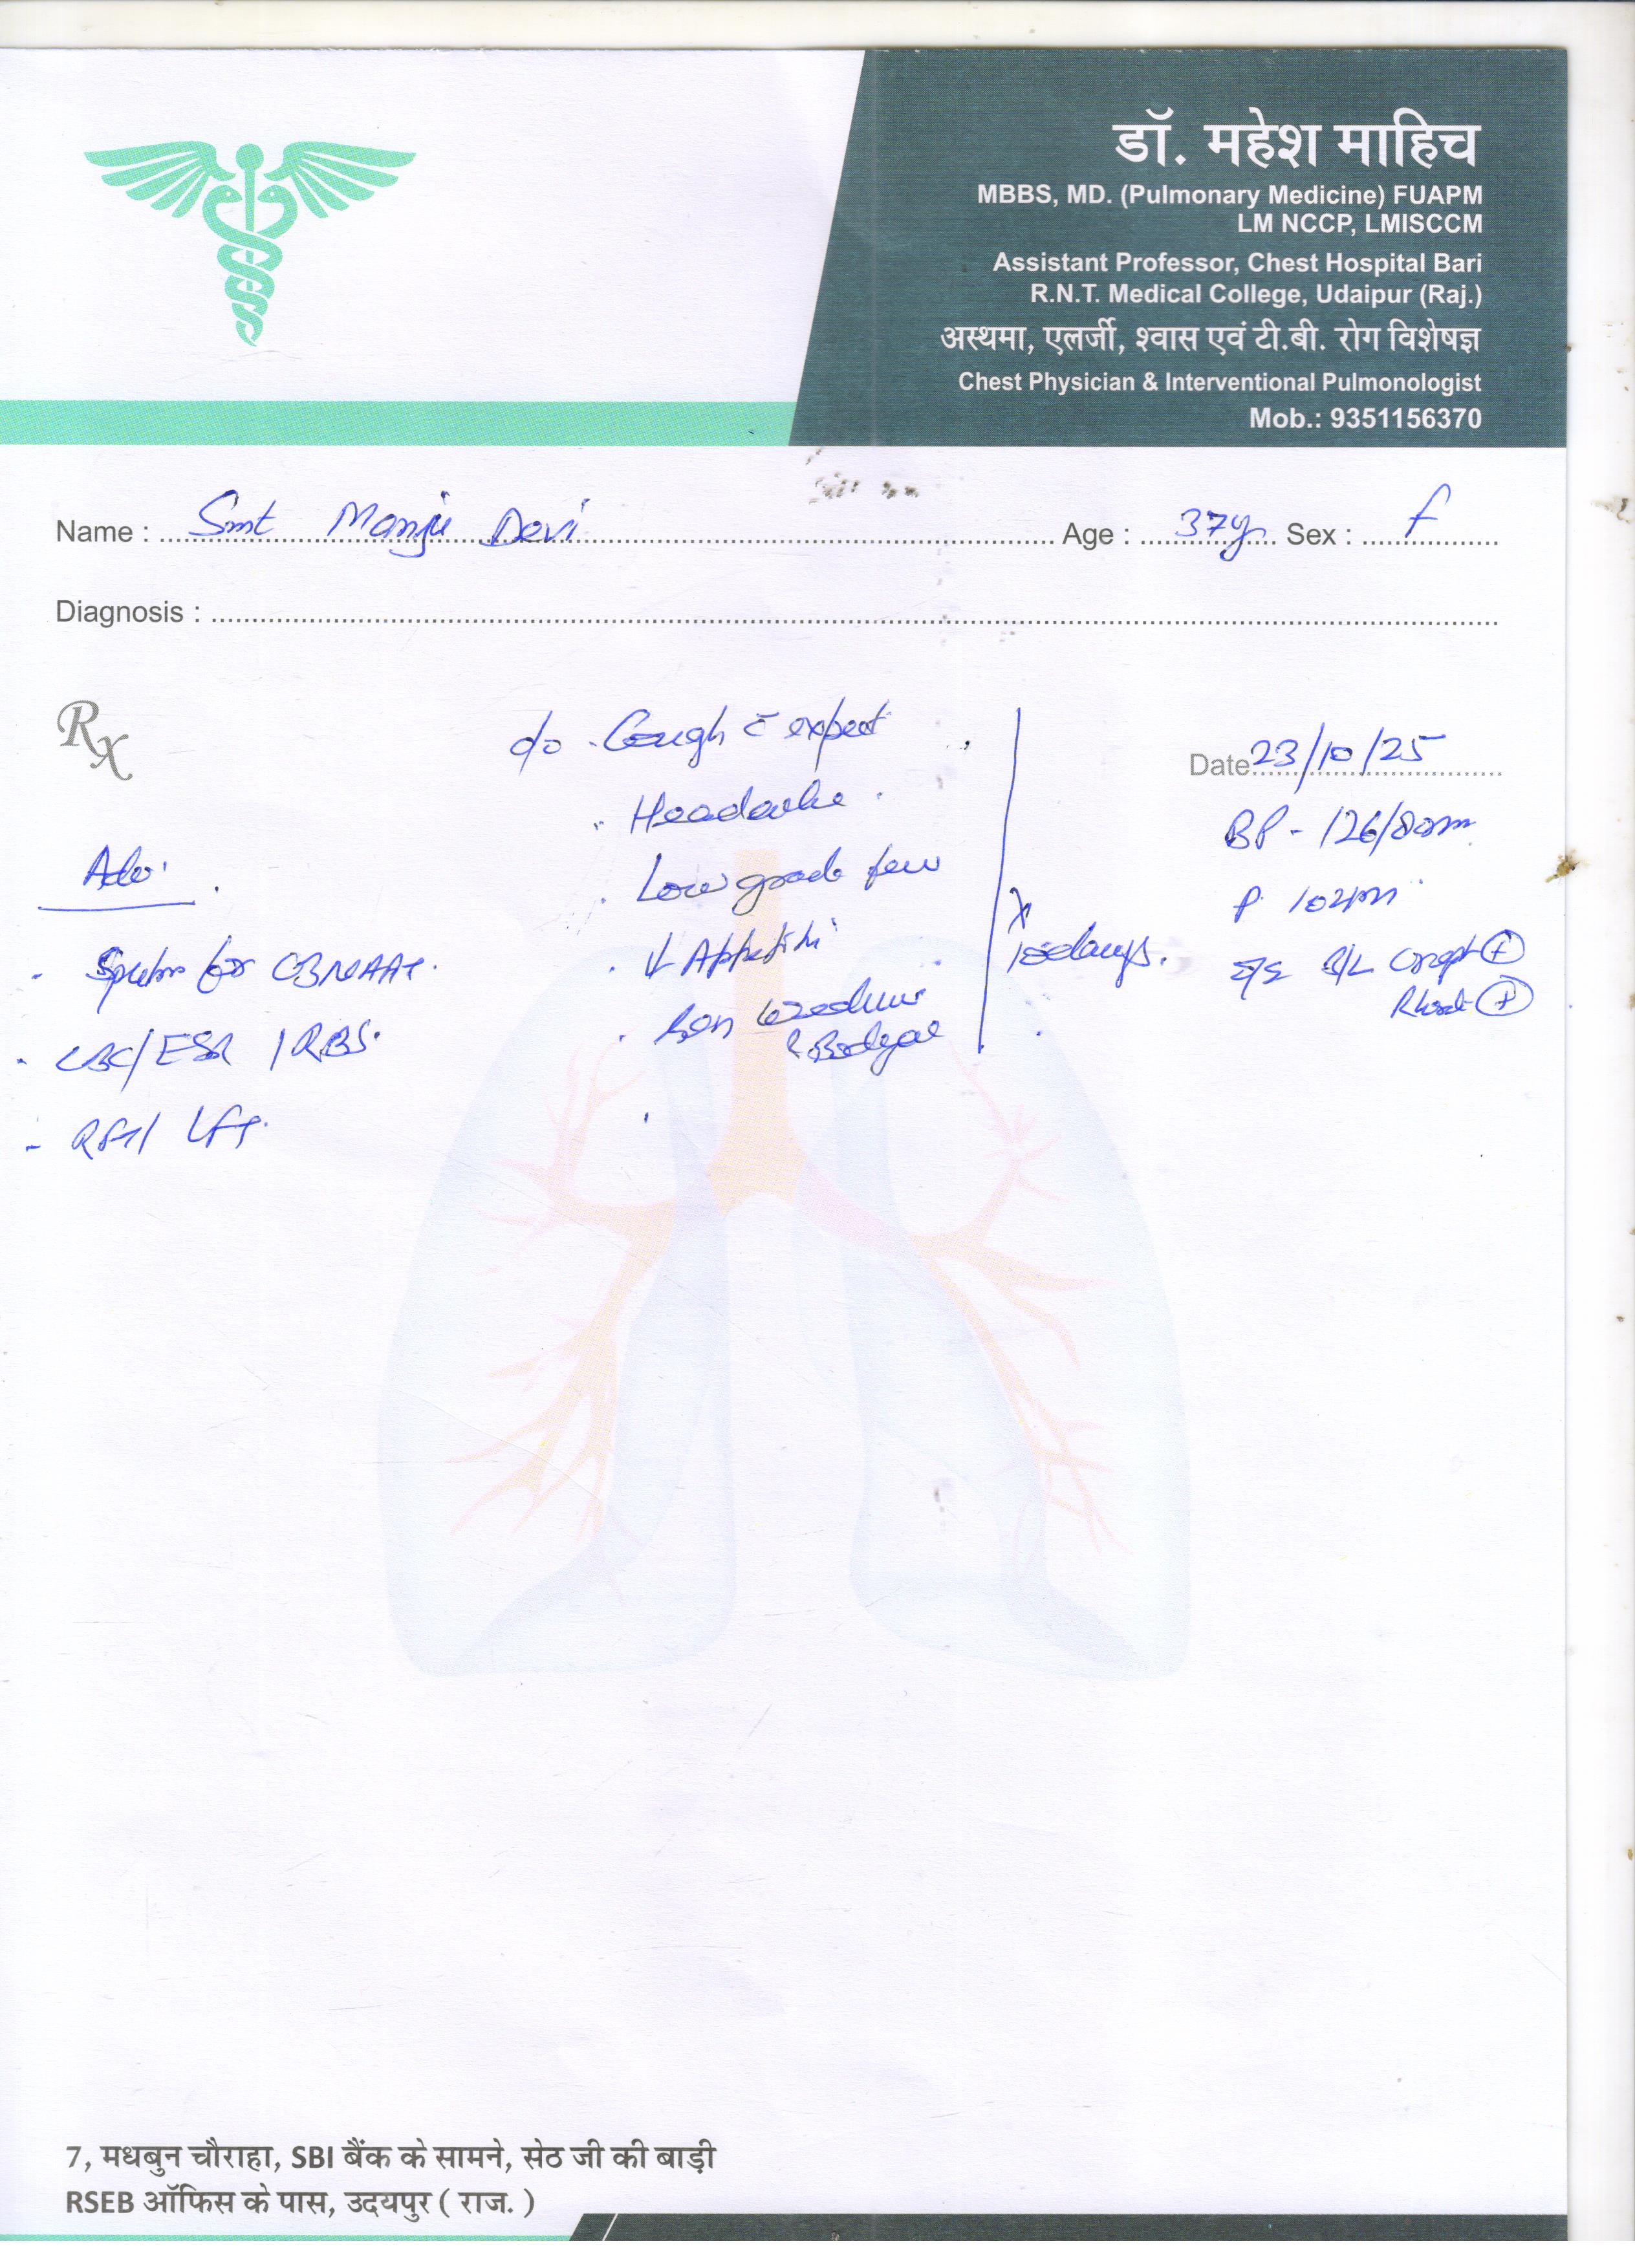 डॉ. महेश माहिच
MBBS, MD. (Pulmonary Medicine) FUAPM
LM NCCP, LMISCCM
Assistant Professor, Chest Hospital Bari
R.N.T. Medical College, Udaipur (Raj.)
अस्थमा, एलर्जी, श्वास एवं टी.बी. रोग विशेषज्ञ
Chest Physician & Interventional Pulmonologist
Mob.: 9351156370
Name : Smt Manju Devi Age : 37y Sex : F
Diagnosis :
Rx
Date 23/10/25
c/o . Cough c̄ expect
. Headache
. Low grade fever
. ↓ Appetite
x 10 days.
BP - 126/80mm
P. 102/m
B/L crept (+)
Rhonchi (+)
Adv.
- Sputum for CBNAAT.
- CBC/ESR /RBS.
- RFT/ LFT.
7, मधबुन चौराहा, SBI बैंक के सामने, सेठ जी की बाड़ी
RSEB ऑफिस के पास, उदयपुर ( राज. )